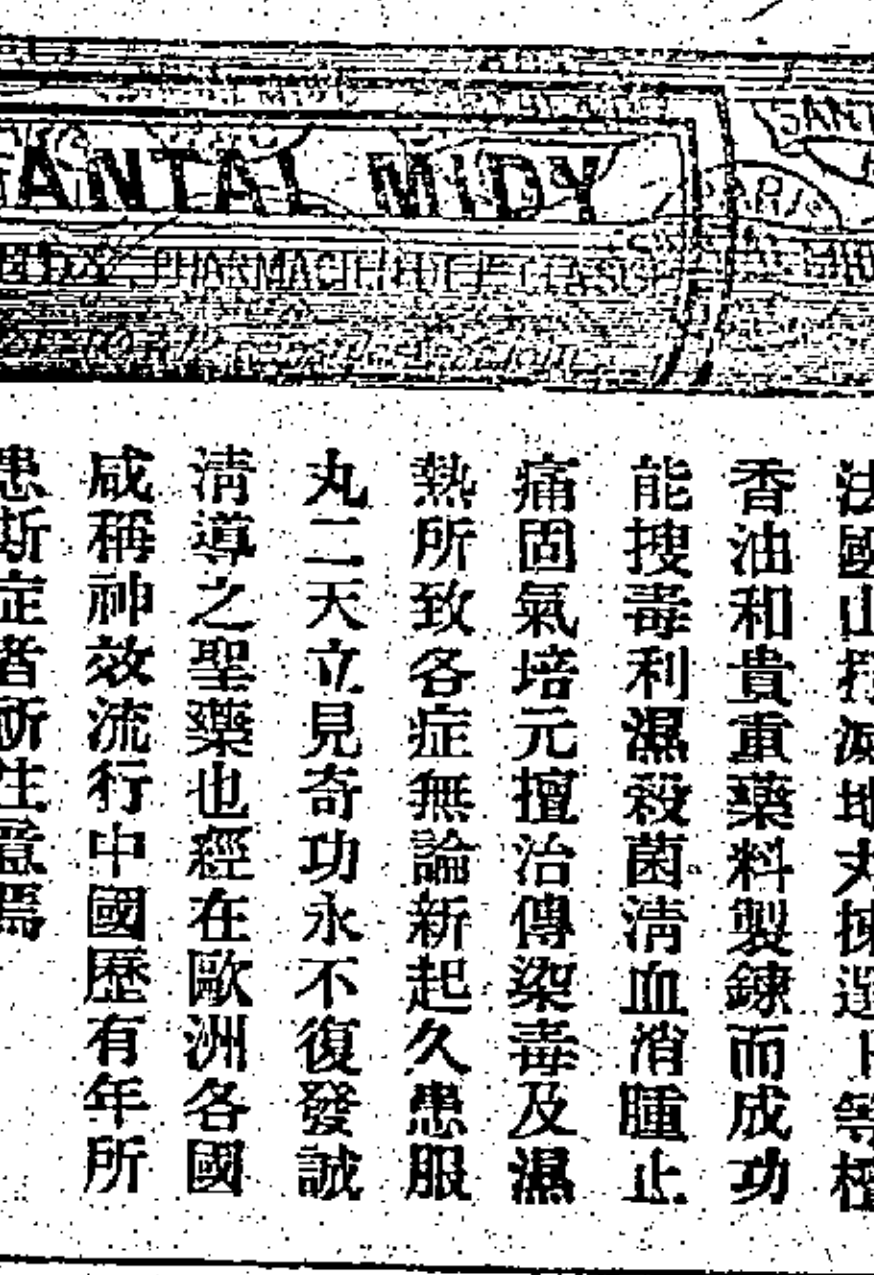 SANTAL MIDY
PHARMACIEN DE 1º CLASSE
SANT
PARIS
法國山打滅地丸揀選上等檀
香油和貴重藥料製鍊而成功
能搜毒利濕殺菌清血消腫止
痛固氣培元擅治傳染毒及濕
熱所致各症無論新起久患服
丸二天立見奇功永不復發誠
清導之聖藥也經在歐洲各國
咸稱神效流行中國歷有年所
患斯症者所注意焉